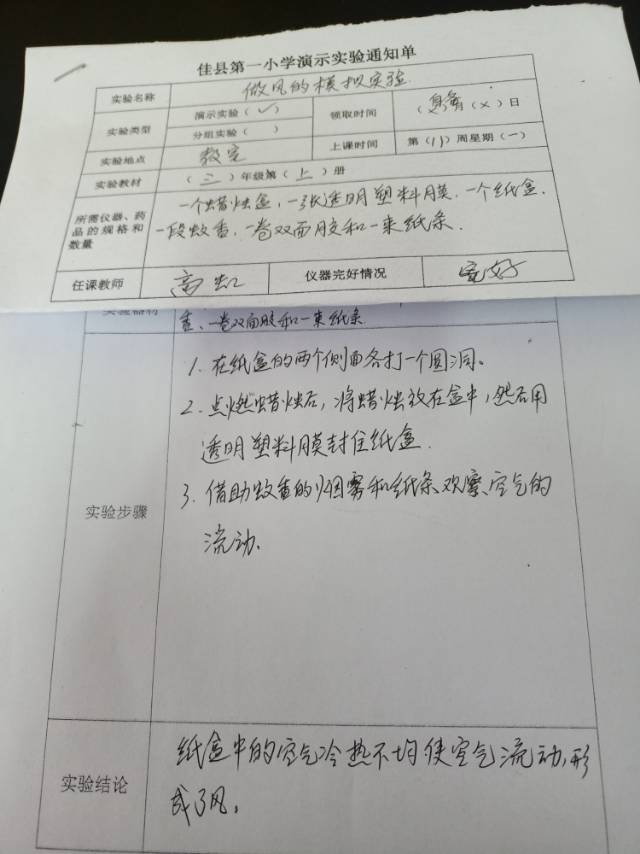 佳县第一小学演示实验通知单
实验名称 做风的模拟实验
实验类型 演示实验(✓) 领取时间 ( (×)日
分组实验( )
实验地点 教室 上课时间 第(11)周星期(一)
实验教材 (三)年级第(上)册
所需仪器、药品的规格和数量 一个蜡烛盒,一张透明塑料膜、一个纸盒、
一段蚊香、一卷双面胶和一束纸条.
任课教师 高虹 仪器完好情况 完好
实验器材 香、一卷双面胶和一束纸条
实验步骤
1. 在纸盒的两个侧面各打一个圆洞。
2. 点燃蜡烛后,将蜡烛放在盒中,然后用
透明塑料膜封住纸盒.
3. 借助蚊香的烟雾和纸条观察空气的
流动.
实验结论 纸盒中的空气冷热不均使空气流动,形
成了风。